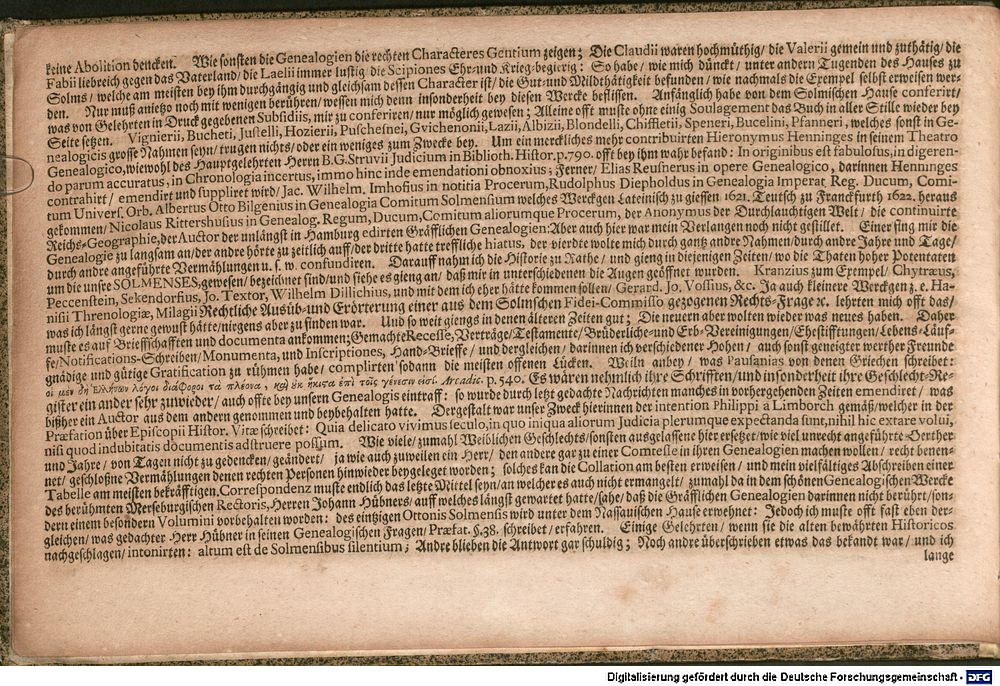 keine Abolition dencken. Wie sonsten die Genealogien die rechten Characteres Gentium zeigen; Die Claudii waren hochmüthig/ die Valerii gemein und zuthätig/ die
Fabii liebreich gegen das Vaterland/ die Laelii immer lustig/ die Scipiones Ehr-und Krieg-begierig: So habe/ wie mich dünckt/ unter andern Tugenden des Hauses zu
Solms/ welche am meisten bey ihm durchgängig und gleichsam dessen Character ist/ die Gut-und Mildthätigkeit befunden/ wie nachmals die Exempel selbst erweisen wer-
den. Nur muß anietzo noch mit wenigen berühren/ wessen mich denn insonderheit bey diesen Wercke beflissen. Anfänglich habe von dem Solmischen Hause conferirt/
was von Gelehrten in Druck gegebenen Subsidiis, mir zu conferiren/ nur möglich gewesen; Alleine offt muste ohne einig Soulagement das Buch in aller Stille wieder bey
Seite setzen. Vignierii, Bucheti, Justelli, Hozierii, Puschesnei, Gvichenonii, Lazii, Albizii, Blondelli, Chiffletii, Speneri, Bucelini, Pfanneri, welches sonst in Ge-
nealogicis grosse Nahmen seyn/ trugen nichts/ oder ein weniges zum Zwecke bey. Um ein merckliches mehr contribuirten Hieronymus Henninges in seinem Theatro
Genealogico, wiewohl des Hauptgelehrten Herrn B. G. Struvii Judicium in Biblioth. Histor. p. 790. offt bey ihm wahr befand: In originibus est fabulosus, in digeren-
do parum accuratus, in Chronologia incertus, immo hinc inde emendationi obnoxius; Ferner/ Elias Reusnerus in opere Genealogico, darinnen Henninges
contrahirt/ emendirt und suppliret wird/ Jac. Wilhelm. Imhofius in notitia Procerum, Rudolphus Diepholdus in Genealogia Imperat. Reg. Ducum, Comi-
tum Univers. Orb. Albertus Otto Bilgenius in Genealogia Comitum Solmensium welches Werckgen Lateinisch zu giessen 1621. Teutsch zu Franckfurth 1622. heraus
gekommen/ Nicolaus Rittershusius in Genealog. Regum, Ducum, Comitum aliorumque Procerum, der Anonymus der Durchlauchtigen Welt/ die continuirte
Reichs-Geographie, der Auctor der unlängst in Hamburg edirten Gräfflichen Genealogien: Aber auch hier war mein Verlangen noch nicht gestillet. Einer fing mir die
Genealogie zu langsam an/ der andre hörte zu zeitlich auff/ der dritte hatte treffliche hiatus, der vierdte wolte mich durch gantz andre Nahmen/ durch andre Jahre und Tage/
durch andre angeführte Vermählungen u. s. w. confundiren. Darauff nahm ich die Historie zu Rathe/ und gieng in diejenigen Zeiten/ wo die Thaten hoher Potentaten
um die unsre SOLMENSES, gewesen/ bezeichnet sind/ und siehe es gieng an/ daß mir in unterschiedenen die Augen geöffnet wurden. Kranzius zum Exempel/ Chytræus,
Peccenstein, Sekendorfius, Jo. Textor, Wilhelm Dillichius, und mit dem ich eher hätte kommen sollen/ Gerard. Jo. Vossius, &c. Ja auch kleinere Werckgen z. e. Ha-
nisii Threnologiæ, Milagii Rechtliche Ausüb-und Erörterung einer aus dem Solmschen Fidei-Commisso gezogenen Rechts-Frage ꝛc. lehrten mich offt das/
was ich längst gerne gewust hätte/ nirgens aber zu finden war. Und so weit giengs in denen älteren Zeiten gut; Die neuern aber wolten wieder was neues haben. Daher
muste es auf Brieffschafften und documenta ankommen; Gemachte Recesse, Verträge/ Testamente/ Brüderliche-und Erb-Vereinigungen/ Ehestifftungen/ Lebens-Läuf-
fe/ Notifications-Schreiben/ Monumenta, und Inscriptiones, Hand-Brieffe/ und dergleichen/ darinnen ich verschiedener Hohen/ auch sonst geneigter werther Freunde
gnädige und gütige Gratification zu rühmen habe/ complirten sodann die meisten offenen Lücken. Weiln anbey/ was Pausanias von denen Griechen schreibet:
οἱ μὲν δὴ Ἑλλήνων λόγοι διάφοροι τὰ πλέονα, καὶ ἐκ ἥκιστα ἐπὶ τοῖς γένεσιν εἰσί. Arcadic. p. 540. Es wären nehmlich ihre Schrifften/ und insonderheit ihre Geschlecht-Re-
gister ein ander sehr zuwieder/ auch offte bey unsern Genealogis eintraff: so wurde durch letzt gedachte Nachrichten manches in vorhergehenden Zeiten emendiret/ was
bißher ein Auctor aus dem andern genommen und beybehalten hatte. Dergestalt war unser Zweck hierinnen der intention Philippi a Limborch gemäß/ welcher in der
Præfation über Episcopii Histor. Vitæ schreibet: Quia delicato vivimus seculo, in quo iniqua aliorum Judicia plerumque expectanda sunt, nihil hic extare volui,
nisi quod indubitatis documentis adstruere possum. Wie viele/ zumahl Weiblichen Geschlechts/ sonsten ausgelassene hier ersetzet/ wie viel unrecht angeführte Oerther
und Jahre/ von Tagen nicht zu gedencken/ geändert/ ja wie auch zuweilen ein Herr/ den andere gar zu einer Comtesse in ihren Genealogien machen wollen/ recht benen-
net/ geschloßne Vermählungen denen rechten Personen hinwieder beygeleget worden; solches kan die Collation am besten erweisen/ und mein vielfältiges Abschreiben einer
Tabelle am meisten bekräfftigen. Correspondenz muste endlich das letzte Mittel seyn/ an welcher es auch nicht ermangelt/ zumahl da in dem schönen Genealogischen Wercke
des berühmten Merseburgischen Rectoris, Herren Johann Hübners/ auff welches längst gewartet hatte/ sahe/ daß die Gräfflichen Genealogien darinnen nicht berührt/ son-
dern einem besondern Volumini vorbehalten worden: des eintzigen Ottonis Solmensis wird unter dem Nassauischen Hause erwehnet: Jedoch ich muste offt fast eben der-
gleichen/ was gedachter Herr Hübner in seinen Genealogischen Fragen/ Præfat. §. 38. schreibet/ erfahren. Einige Gelehrten/ wenn sie die alten bewährten Historicos
nachgeschlagen/ intonirten: altum est de Solmensibus silentium; Andre blieben die Antwort gar schuldig; Noch andre überschrieben etwas das bekandt war/ und ich
lange
Digitalisierung gefördert durch die Deutsche Forschungsgemeinschaft - DFG